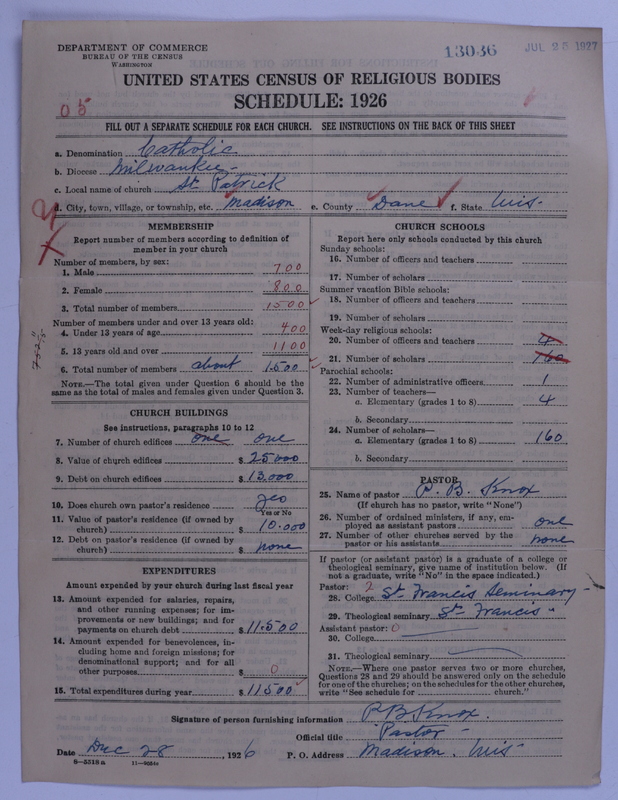 DEPARTMENT OF COMMERCE
BUREAU OF THE CENSUS
WASHINGTON
13036
JUL 25 1927
UNITED STATES CENSUS OF RELIGIOUS BODIES
SCHEDULE: 1926
05
FILL OUT A SEPARATE SCHEDULE FOR EACH CHURCH. SEE INSTRUCTIONS ON THE BACK OF THIS SHEET
a. Denomination Catholic
b. Diocese Milwaukee
c. Local name of church St Patrick
d. City, town, village, or township, etc. Madison e. County Dane f. State Wis-
MEMBERSHIP
Report number of members according to definition of
member in your church
Number of members, by sex:
1. Male 700
2. Female 800
3. Total number of members 1500
Number of members under and over 13 years old:
4. Under 13 years of age 400
5. 13 years old and over 1100
6. Total number of members about 1.500
NOTE.—The total given under Question 6 should be the
same as the total of males and females given under Question 3.
CHURCH BUILDINGS
See instructions, paragraphs 10 to 12
7. Number of church edifices one one
8. Value of church edifices $ 25000
9. Debt on church edifices $ 13.000
10. Does church own pastor's residence yes
Yes or No
11. Value of pastor's residence (if owned by
church) $ 10.000
12. Debt on pastor's residence (if owned by
church) $ none
EXPENDITURES
Amount expended by your church during last fiscal year
13. Amount expended for salaries, repairs,
and other running expenses; for im-
provements or new buildings; and for
payments on church debt $ 11.500
14. Amount expended for benevolences, in-
cluding home and foreign missions; for
denominational support; and for all
other purposes $ 0
15. Total expenditures during year $ 11500
CHURCH SCHOOLS
Report here only schools conducted by this church
Sunday schools:
16. Number of officers and teachers
17. Number of scholars
Summer vacation Bible schools:
18. Number of officers and teachers
19. Number of scholars
Week-day religious schools:
20. Number of officers and teachers 4
21. Number of scholars 160
Parochial schools:
22. Number of administrative officers 1
23. Number of teachers—
a. Elementary (grades 1 to 8) 4
b. Secondary
24. Number of scholars—
a. Elementary (grades 1 to 8) 160
b. Secondary
PASTOR
25. Name of pastor P. B. Knox
(If church has no pastor, write "None")
26. Number of ordained ministers, if any, em-
ployed as assistant pastors one
27. Number of other churches served by the
pastor or his assistants none
If pastor (or assistant pastor) is a graduate of a college or
theological seminary, give name of institution below. (If
not a graduate, write "No" in the space indicated.)
Pastor: 2
28. College St Francis Seminary-
29. Theological seminary St Francis "
Assistant pastor: 0
30. College
31. Theological seminary
NOTE.—Where one pastor serves two or more churches,
Questions 28 and 29 should be answered only on the schedule
for one of the churches; on the schedules for the other churches,
write "See schedule for church."
Signature of person furnishing information P B Knox.
Official title Pastor
Date Dec 28, 1926 P. O. Address Madison. Wis-
8-5518a 11-9084a